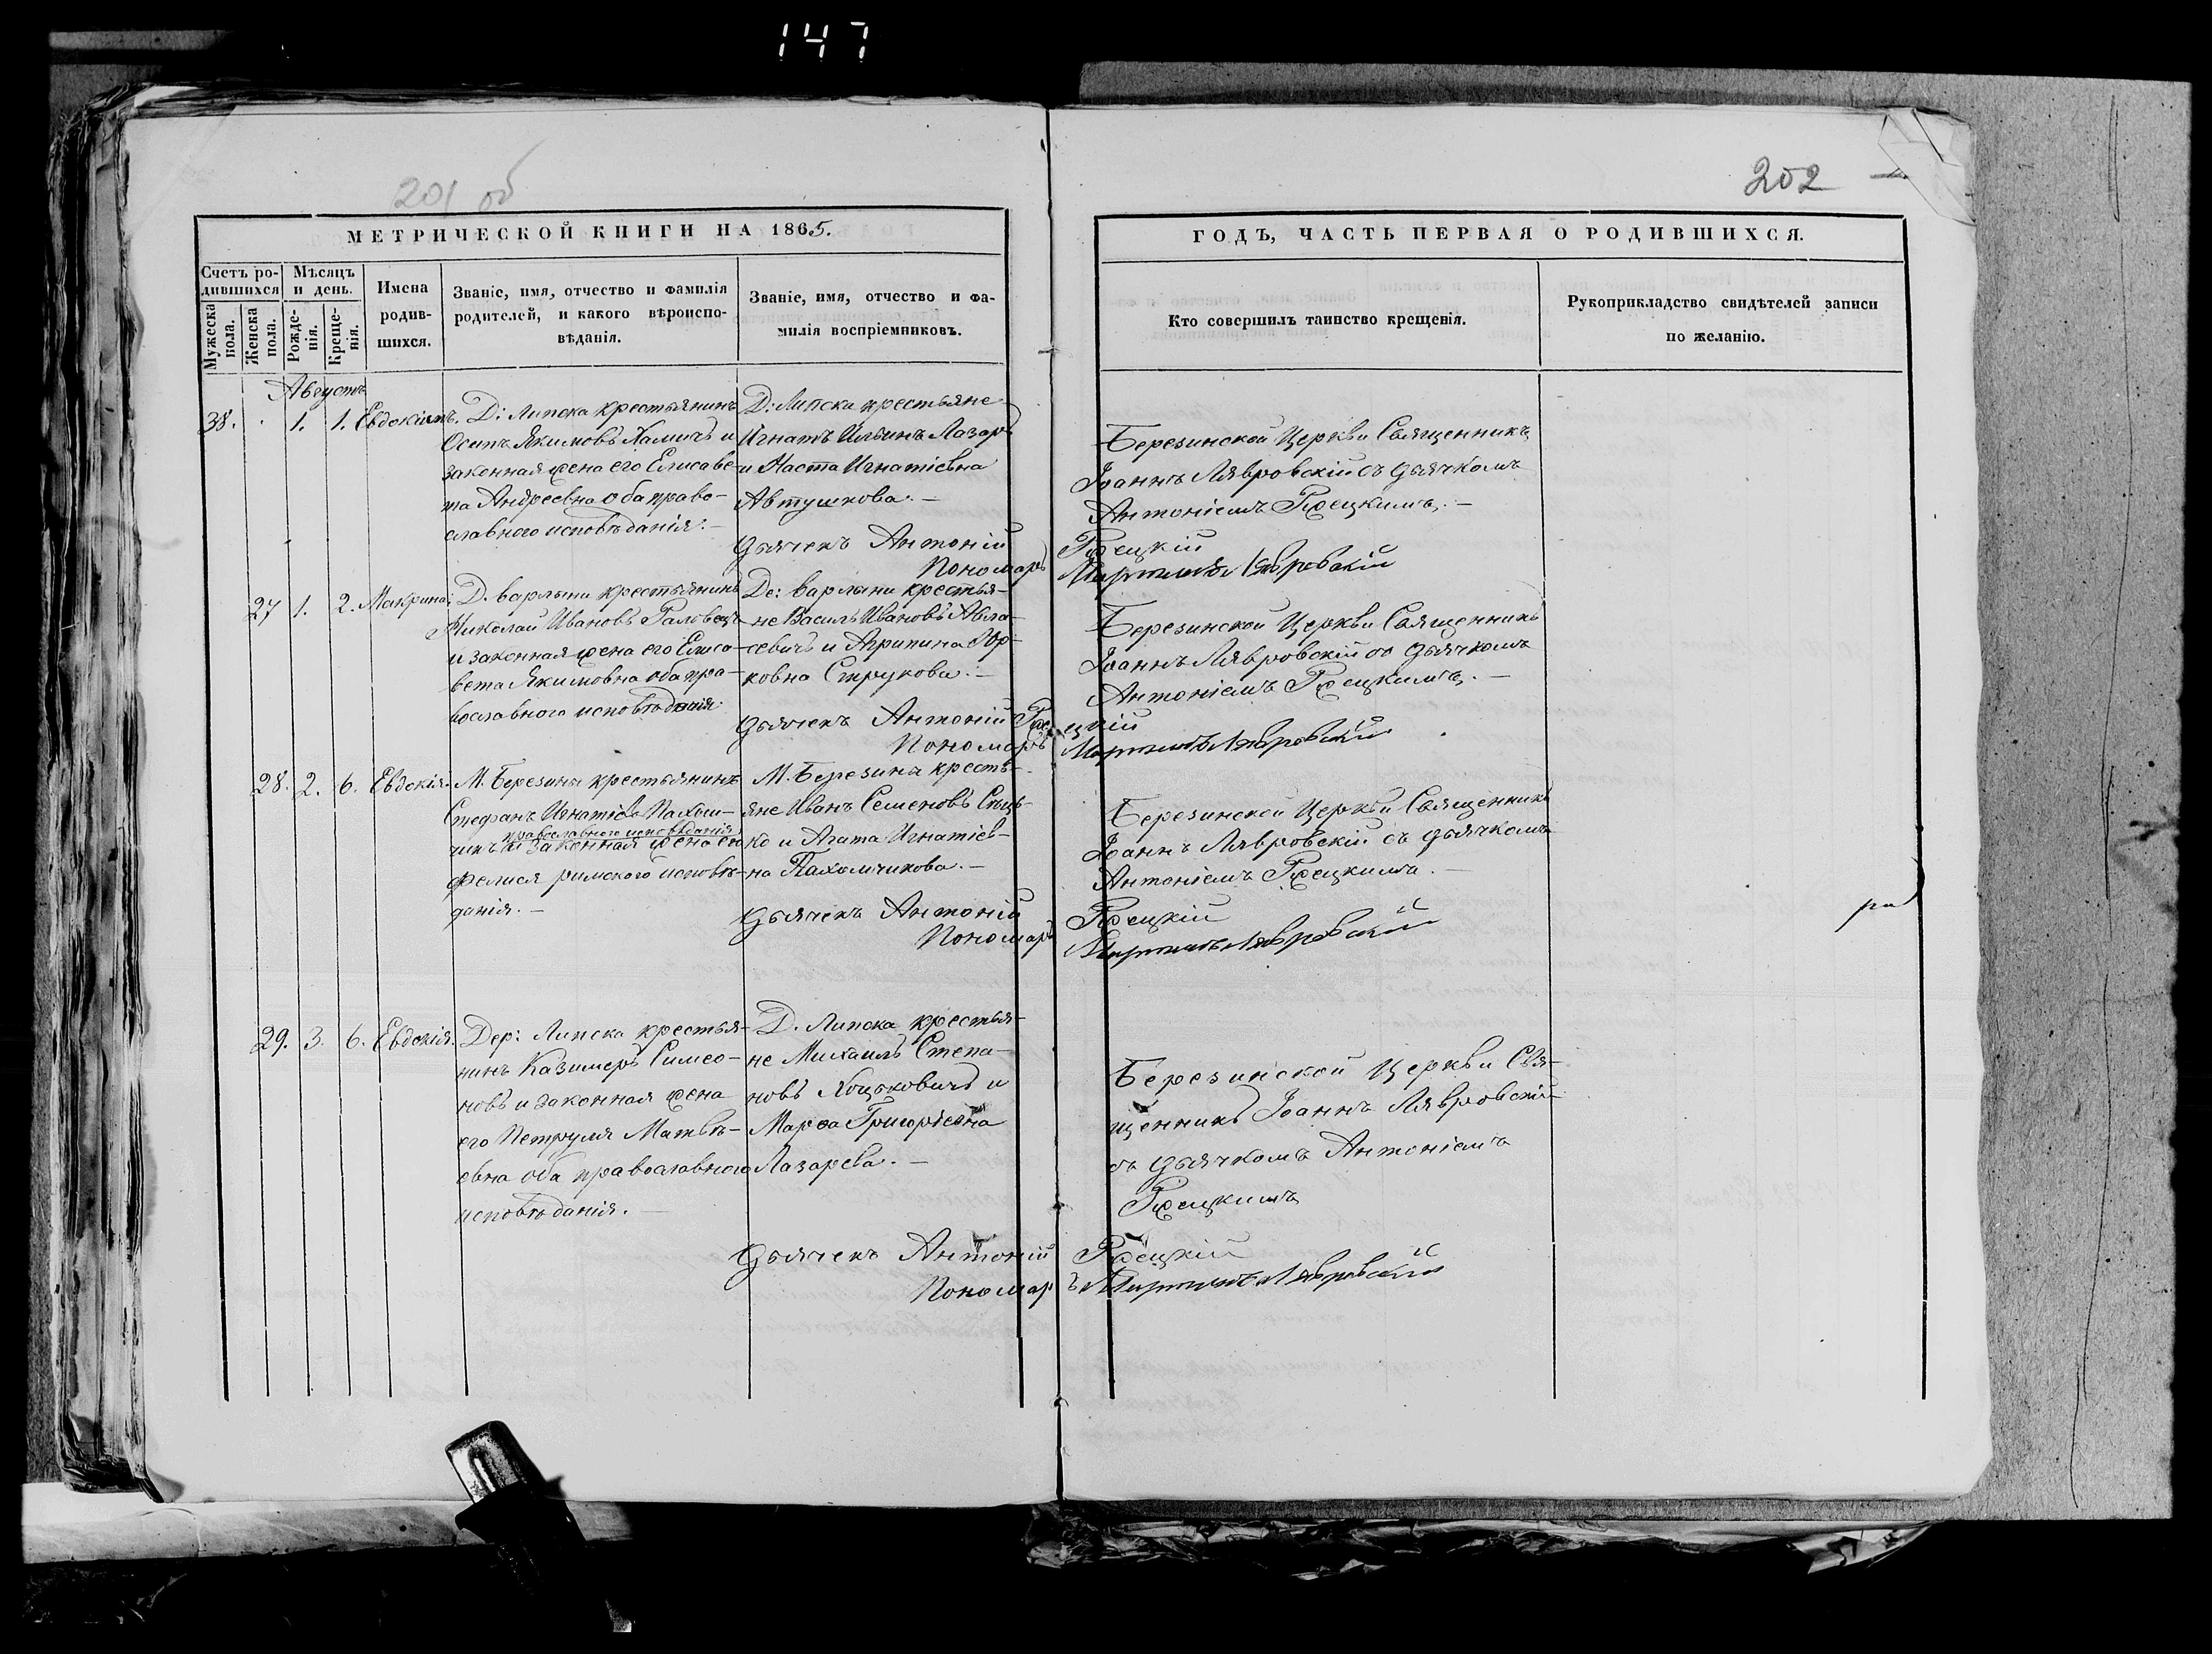 147
201 об
202
МЕТРИЧЕСКОЙ КНИГИ НА 1865.
ГОДЪ, ЧАСТЬ ПЕРВАЯ О РОДИВШИХСЯ.
Счетъ ро-
дившихся
Мужеска пола.
Женска пола.
Мѣсяцъ
и день.
Рожде-
нія.
Креще-
нія.
Имена
родив-
шихся.
Званіе, имя, отчество и фамилія
родителей, и какого вѣроиспо-
вѣданія.
Званіе, имя, отчество и фа-
милія воспріемниковъ.
Кто совершилъ таинство крещенія.
Рукоприкладство свидѣтелей записи
по желанію.
Августъ
38. 1. 1. Евдокимъ.
Д: Липска крестьянинъ
Осипъ Якимовъ и
законная жена его Елисаве-
та Андреевна оба право-
славного исповѣданія.-
Д: Липска крестьяне
Игнатъ Ильинъ Лазаръ
и Наста Игнатіевна
Автушкова.-
Березинской Церкви Священникъ
Іоаннъ Лявровскій съ дьячкомъ
Антоніемъ
дьячекъ Антоній
Пономарь Лявровскій
27 1. 2. Макрина.
Д. Варлыни крестьянинъ
Николай Ивановъ
и законная жена его Елиса-
вета Якимовна оба пра-
вославного исповѣданія
Де: Варлыни крестья-
не Василь Ивановъ
и Агрипина
ковна Струкова.-
Березинской Церкви Священникъ
Іоаннъ Лявровскій со дьячкомъ
Антоніемъ
дьячекъ Антоній
Пономарь Лявровскій
28. 2. 6. Евдокія.
М. Березина крестьянинъ
Стефанъ Игнатіевъ Пахом-
чикъ православного исповѣданія
и законная жена его
Фелися римского исповѣ-
данія.-
М. Березина кресть-
яне Иванъ Семеновъ
ко и Агата Игнатіев-
на Пахомчикова.-
Березинской Церкви Священникъ
Іоаннъ Лявровскій съ дьячкомъ
Антоніемъ
дьячекъ Антоній
Пономарь Лявровскій
29. 3. 6. Евдокія.
Дер: Липска крестья-
нинъ Казимеръ Симео-
новъ и законная жена
его Петруля Матвѣ-
евна оба православного
исповѣданія.-
Д. Липска крестья-
не Михаилъ Степа-
новъ и
Марѳа Григоріевна
Лазарева.-
Березинской Церкви Свя-
щенникъ Іоаннъ Лявровскій
съ дьячкомъ Антоніемъ
дьячекъ Антоній
Пономарь Лявровскій